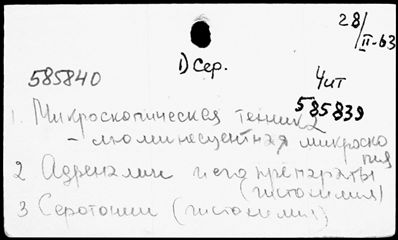 28/II-63
D Сер.
585840
Чит
585839
1. Микроскопическая техника
- люминесцентная микроско
пия
2 Адреналин и его препараты
(гистохимия)
3 Серотонин (гистохимия)